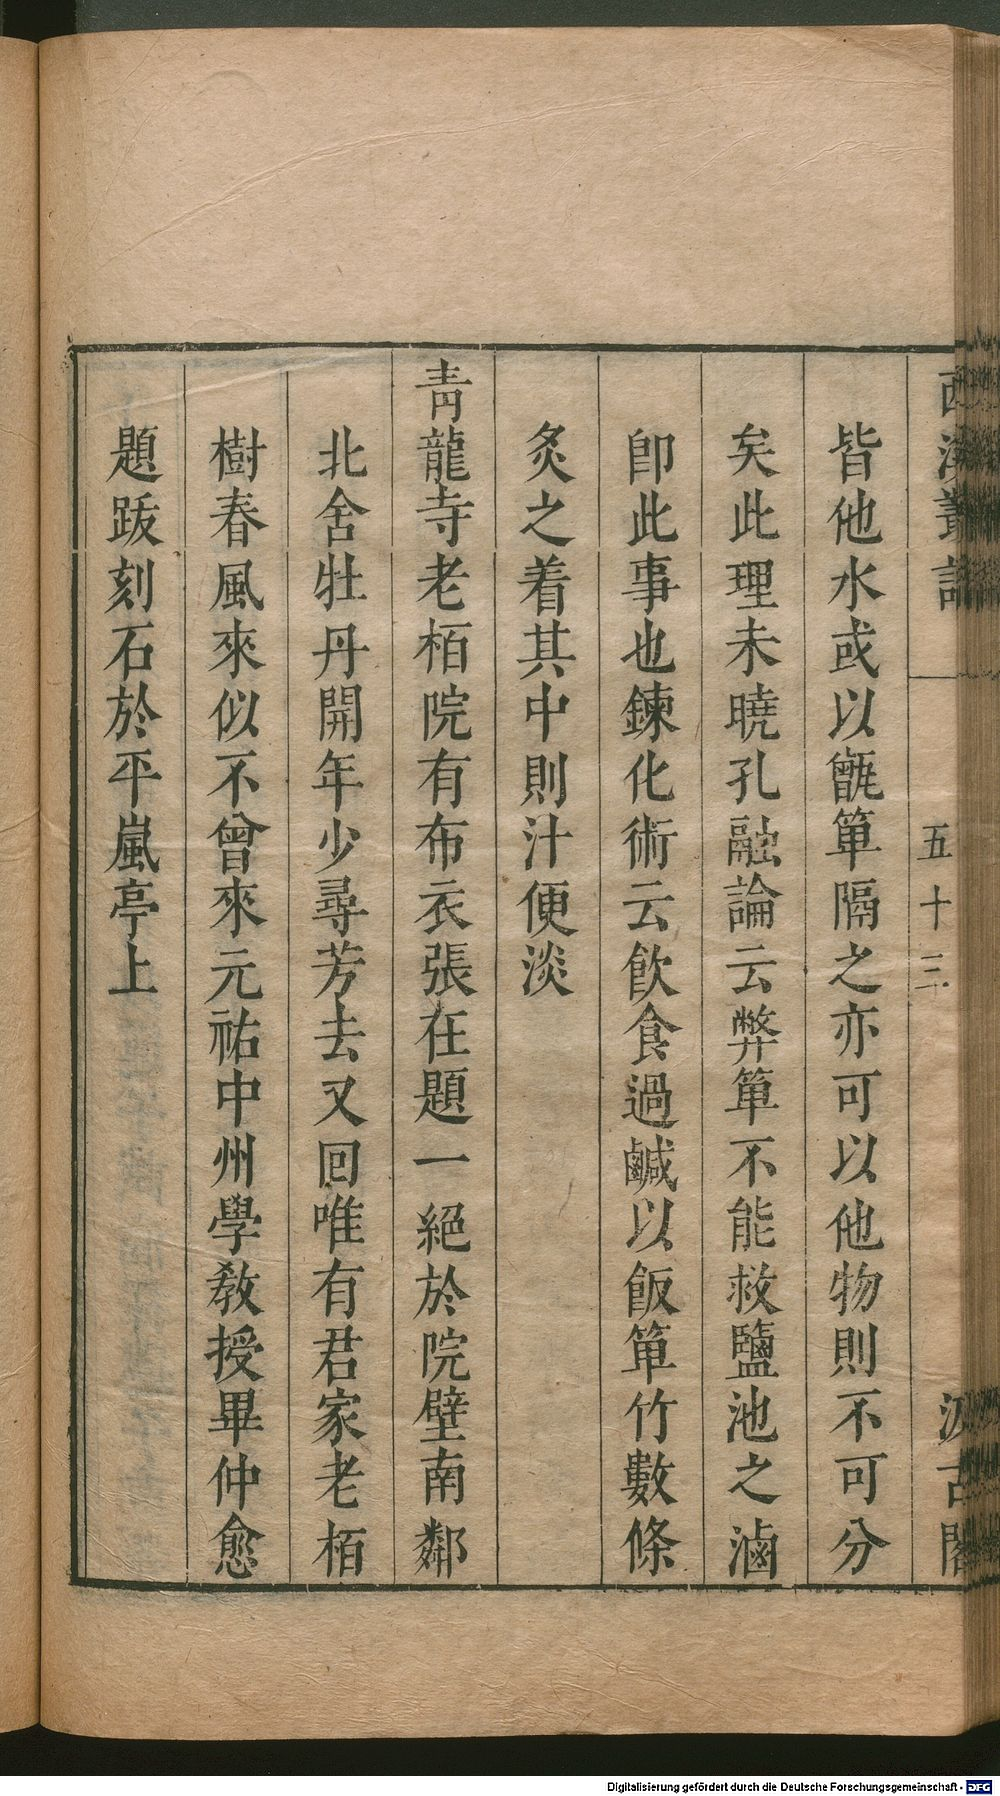 西溪叢語 五十三 汲古閣
皆他水或以甑箄隔之亦可以他物則不可分
矣此理未曉孔融論云弊箄不能救鹽池之滷
卽此事也鍊化術云飲食過鹹以飯箄竹數條
炙之着其中則汁便淡
青龍寺老栢院有布衣張在題一絕於院壁南鄰
北舍牡丹開年少尋芳去又回唯有君家老栢
樹春風來似不曾來元祐中州學敎授畢仲愈
題跋刻石於平嵐亭上
Digitalisierung gefördert durch die Deutsche Forschungsgemeinschaft - DFG